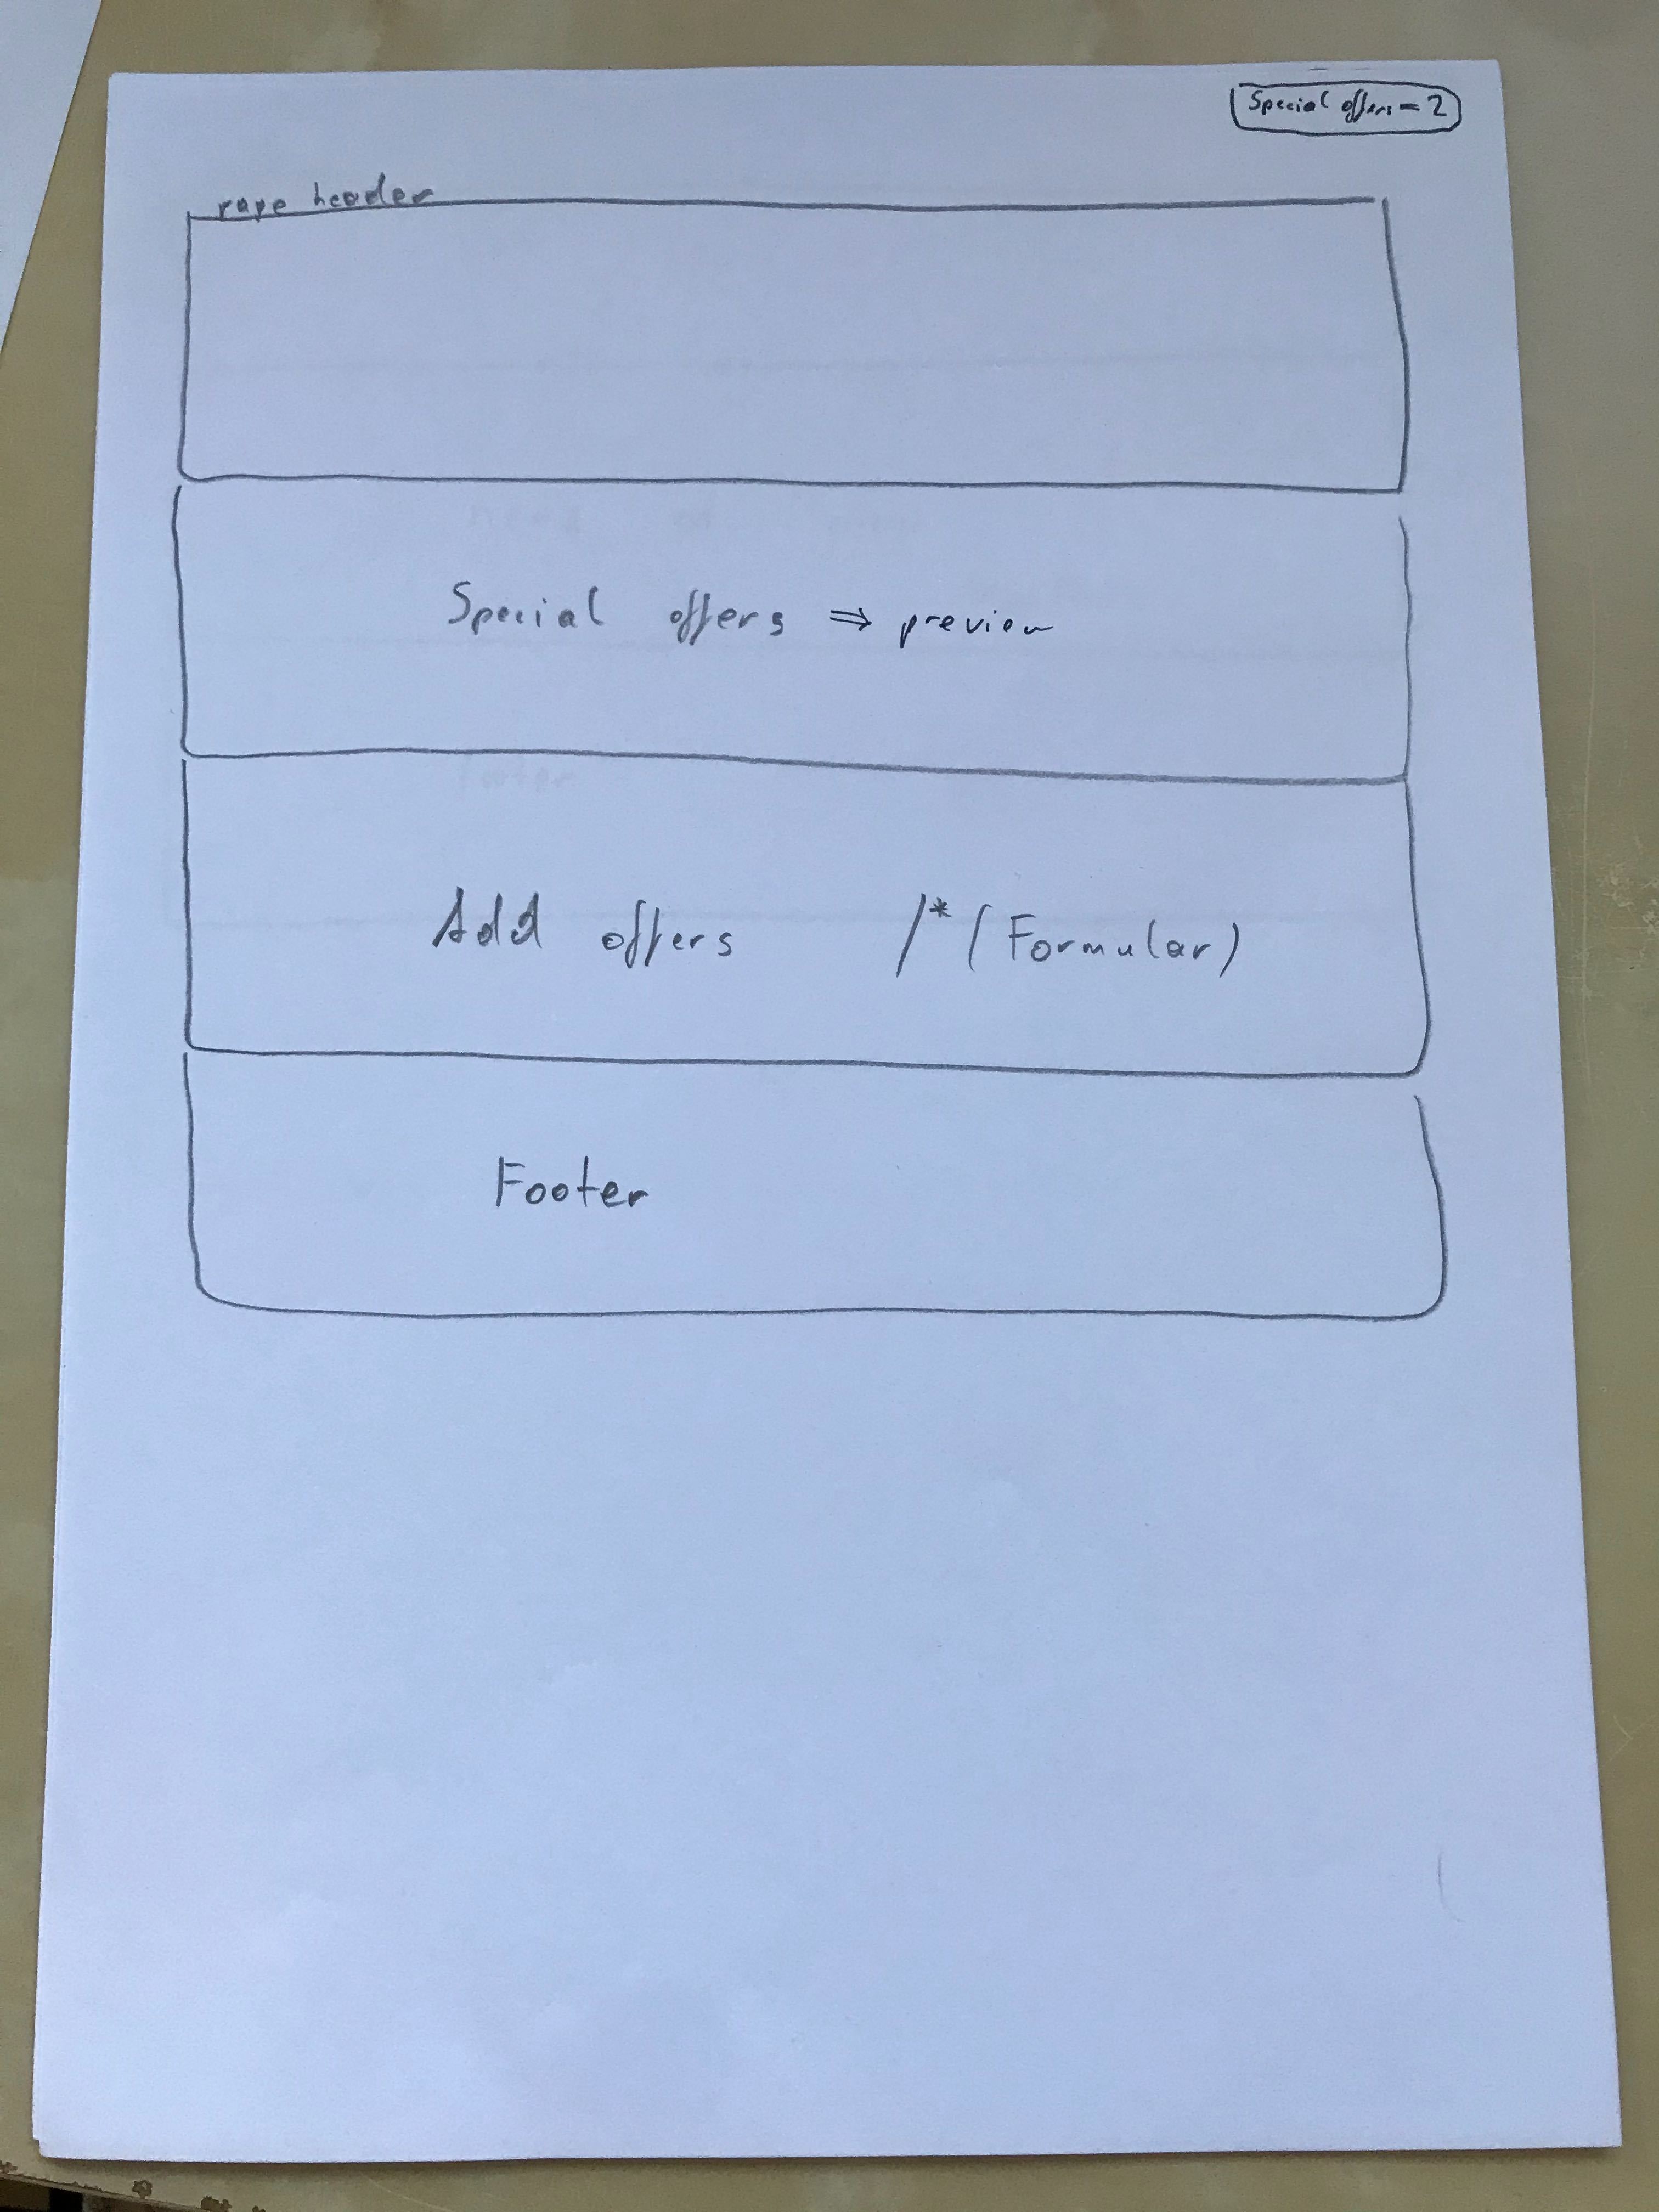 Special offers = 2
page header
Special offers ⇒ preview
Add offers /* (Formular)
Footer